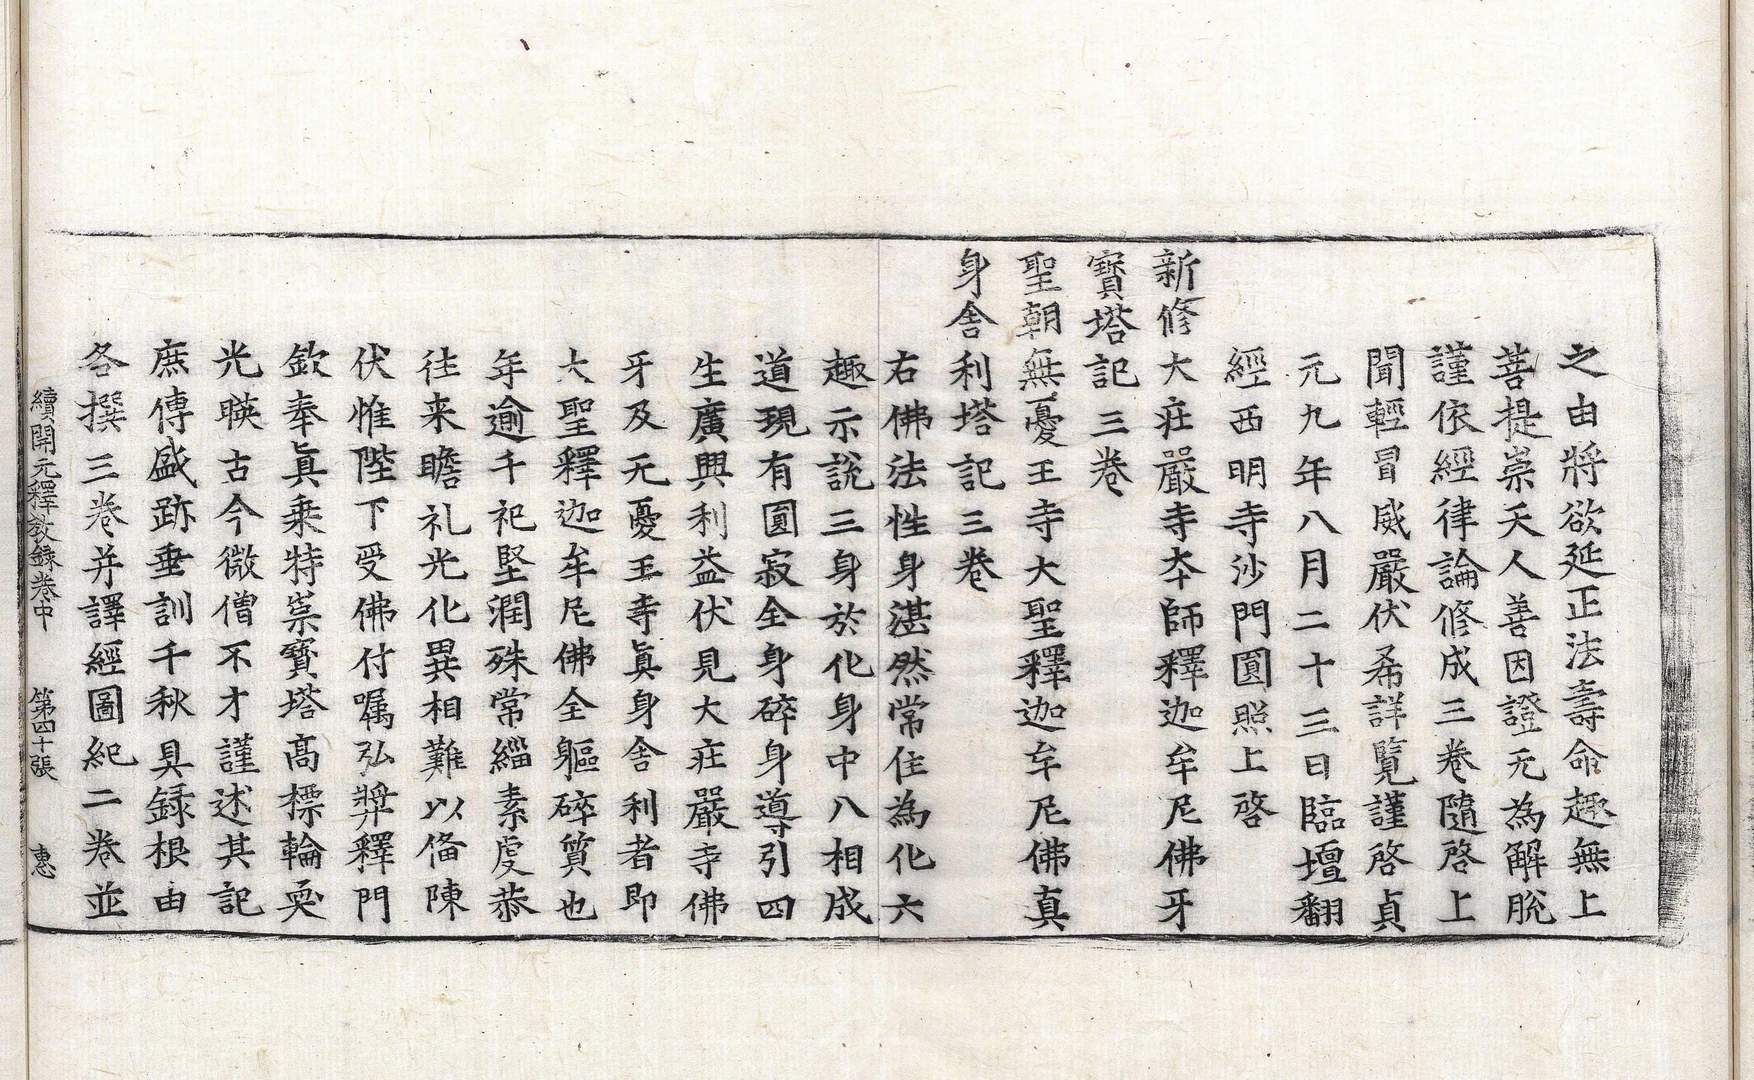 之由將欲延正法壽命趣無上
菩提崇天人善因證无為解脫
謹依經律論修成三卷隨啓上
聞輕冒威嚴伏希詳覽謹啓貞
元九年八月二十三日臨壇翻
經西明寺沙門圓照上啓
新修大莊嚴寺夲師釋迦牟尼佛牙
寶塔記三卷
聖朝無憂王寺大聖釋迦牟尼佛真
身舍利塔記三卷
右佛法性身湛然常住為化六
趣示說三身於化身中八相成
道現有圓寂全身碎身導引四
生廣興利益伏見大莊嚴寺佛
牙及无憂王寺真身舍利者即
大聖釋迦牟尼佛全軀碎質也
年逾千祀堅潤殊常緇素虔恭
往来瞻礼光化異相難以俻陳
伏惟陛下受佛付嘱弘奬釋門
欽奉真乗特崇寶塔高標輪奐
光暎古今微僧不才謹述其記
庶傳盛跡垂訓千秋具録根由
各撰三卷并譯經圖紀二卷並
續開元釋教録卷中 第四十張 惠